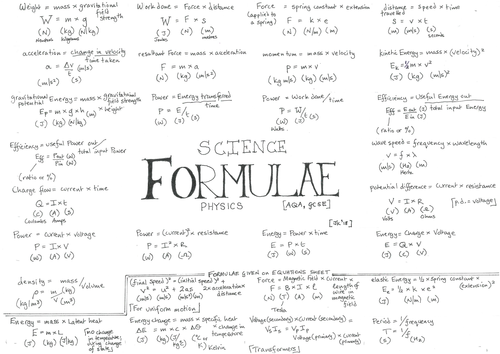 Weight = mass × gravitational field strength
W = m × g
(N) (kg) (N/kg)
Newtons kilograms
Work done = Force × distance
W = F × s
(J) (N) (m)
Joules metres
Force (applied to a spring) = spring constant × extension
F = k × e
(N) (N/m) (m)
distance travelled = speed × time
s = v × t
(m) (m/s) (s)
seconds
acceleration = change in velocity / time taken
a = Δv / t
(m/s²) (m/s) (s)
resultant Force = mass × acceleration
F = m × a
(N) (kg) (m/s²)
momentum = mass × velocity
p = m × v
(kg m/s) (kg) (m/s)
kinetic Energy = ½ × mass × (velocity)²
Ek = ½ × m × v²
(J) (kg) (m/s)²
gravitational potential Energy = mass × gravitational field strength × height
Ep = m × g × h
(J) (kg) (N/kg) (m)
Power = Energy transferred / time
P = E / t
(W) (J) (s)
Power = Work done / time
P = W / t
(W) (J) (s)
Watts
Efficiency = Useful Energy out / total input Energy
Eff = Eout (J) / Ein (J)
(ratio or %)
Efficiency = useful Power out / total input Power
Eff = Pout (W) / Pin (W)
(ratio or %)
SCIENCE
FORMULAE
PHYSICS [AQA, GCSE]
wave speed = frequency × wavelength
v = f × λ
(m/s) (Hz) (m)
Hertz
Charge flow = current × time
Q = I × t
(C) (A) (s)
Coulombs Amps
potential difference = Current × resistance
V = I × R [p.d. = voltage]
(V) (A) (Ω)
Volts Ohms
Power = current × voltage
P = I × V
(W) (A) (V)
Power = (current)² × resistance
P = I² × R
(W) (A) (Ω)
Energy = Power × time
E = P × t
(J) (W) (s)
Energy = Charge × Voltage
E = Q × V
(J) (C) (V)
density = mass / volume
ρ = m (kg) / V (m³)
(kg/m³)
FORMULAE GIVEN ON EQUATIONS SHEET
(final speed)² = (initial speed)² + 2 × acceleration × distance
v² = u² + 2as
(m/s) (m/s) (m/s²) (m)
[For uniform motion]
Force = Magnetic field × current × length of wire in magnetic field
F = B × I × l
(N) (T) (A) (m)
Tesla
elastic Energy = ½ × spring constant × (extension)²
Ee = ½ × k × e²
(J) (N/m) (m)
Energy = mass × Latent heat
E = m × L
(J) (kg) (J/kg)
[no change in temperature during change of state]
Energy change = mass × specific heat × change in temperature
ΔE = m × c × Δθ
(J) (kg)
Kelvin
Voltage (secondary) × Current (secondary) = Voltage (primary) × current (primary)
VsIs = VpIp
[Transformers]
Period = 1/frequency
T = 1/f
(s) (Hz)